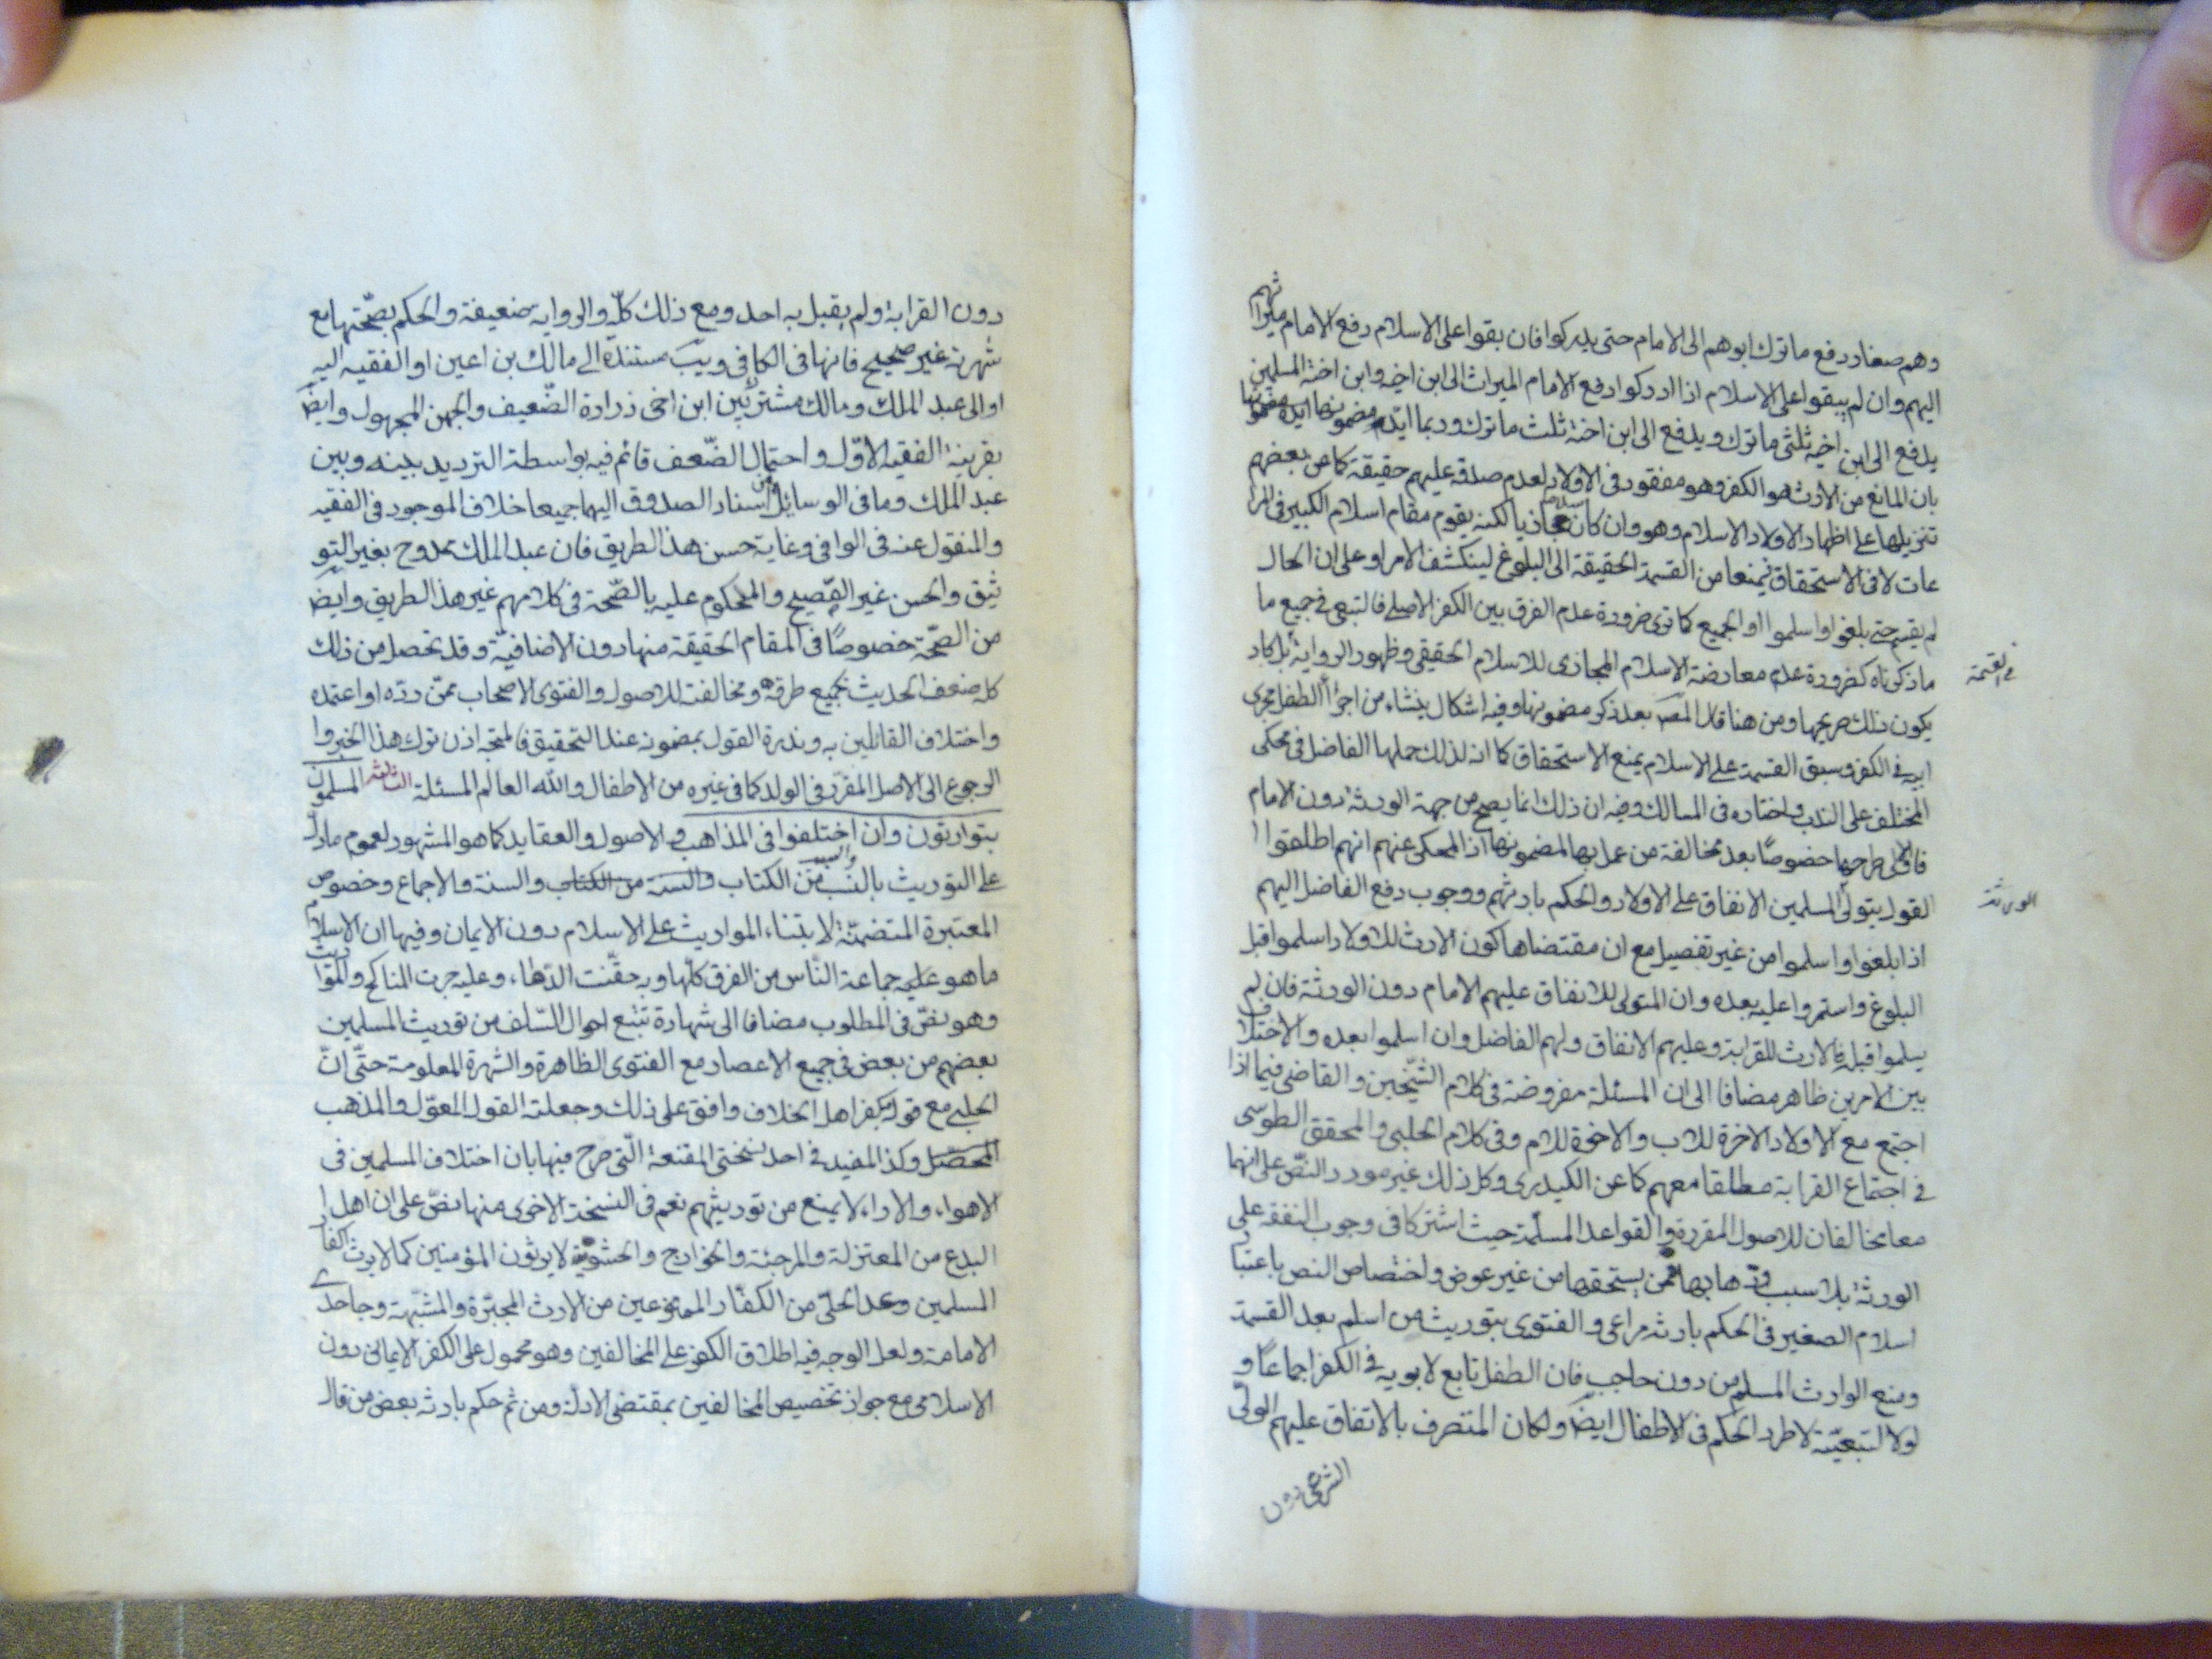 وهم صغار دفع ما ترك ابوهم الى الامام حتى يدركوا فان بقوا على الاسلام دفع الامام ميراثهم
اليهم وان لم يبقوا على الاسلام اذا ادركوا دفع الامام الميراث الى ابن اخيه وابن اخته المسلمين
يدفع الى ابن اخيه ثلثى ما ترك ويدفع الى ابن اخته ثلث ما ترك وربما ايد مضمونها
بان المانع من الارث هو الكفر وهو مفقود فى الاولاد لعدم صدقه عليهم حقيقة كما عن بعضهم
تنزيلها على اظهار الاولاد الاسلام وهو وان كان مجازيا لكنه يقوم مقام اسلام الكبير فى المرا
عات لا فى الاستحقاق فيمنعها من القسمة الحقيقة الى البلوغ لينكشف الامر او على ان الحال
لم يقسم حتى بلغوا واسلموا والجميع كما ترى ضرورة عدم الفرق بين الكفر الاصلى فالتبعى فى جميع ما
فى القسمة
ما ذكرناه كضرورة عدم معارضة الاسلام المجازى للاسلام الحقيقى وظهور الرواية بل كاد
يكون ذلك صريحها ومن هنا قال المصـ بعد ذكر مضمونها وفيه اشكال ينشاء من اجراء الطفل مجرى
ابيه فى الكفر وسبق القسمة على الاسلام يمنع الاستحقاق كما انه لذلك حملها الفاضل فى محكى
المختلف على الندب واختاره فى المسالك وفيه ان ذلك انما يصح من جهة الورثة دون الامام
فالاولى طرحها خصوصًا بعد مخالفة من عمل بها لمضمونها اذ المحكى عنهم انهم اطلقوا
القول بتولى المسلمين الانفاق على الاولاد والحكم بارثهم ووجوب دفع الفاضل اليهم
الورثة
اذا بلغوا واسلموا من غير تفصيل مع ان مقتضاها كون الارث للاولاد اسلموا قبل
البلوغ واستمروا عليه بعده وان المتولى للانفاق عليهم الامام دون الورثة فان لم
يسلموا قبله فالارث للقرابة وعليهم الانفاق ولهم الفاضل وان اسلموا بعده والاختلاف
بين الامرين ظاهر مضافا الى ان المسئلة مفروضة فى كلام الشيخين والقاضى فيما اذا
اجتمع مع الاولاد الاخوة للاب والاخوة للام وفى كلام الحلبى والمحقق الطوسى
فى اجتماع القرابة مطلقا معهم كما عن الكيدرى وكل ذلك غير مورد النص على انهما
معا مخالفان للاصول المقررة والقواعد المسلمة حيث اشتركا فى وجوب النفقة على
الورثة بلا سبب وذهابها ممن يستحقها من غير عوض واختصاص النص باعتبار
اسلام الصغير فى الحكم بارثه مراعى والفتوى بتوريث من اسلم بعد القسمة
ومنع الوارث المسلم من دون حاجب فان الطفل تابع لابويه فى الكفر اجماعًا و
لولا التبعية لاطرد الحكم فى الاطفال ايضـ ولكان المتصرف بالانفاق عليهم الولى
الشرعى دون
دون القرابة ولم يقبل به احد ومع ذلك كله والرواية ضعيفة والحكم بصحتها مع
شهرته غير صحيح فانها فى الكافى ويب مستندة الى مالك بن اعين او الفقيه اليه
او الى عبد الملك ومالك مشترك بين ابن اخى زرارة الضعيف والجهنى المجهول وايضـ
بقرينة الفقيه الاول واحتمال الضعف قائم فيه بواسطة الترديد بينه وبين
عبد الملك وما فى الوسائل من اسناد الصدوق اليهما جميعا خلاف الموجود فى الفقيه
والمنقول عنه فى الوافى وغاية حسن هذا الطريق فان عبد الملك ممدوح بغير التو
ثيق والحسن غير الصحيح والمحكوم عليه بالصحة فى كلامهم غير هذا الطريق وايضـ
من الصحة خصوصًا فى المقام الحقيقة منها دون الاضافية وقد تحصل من ذلك
كله ضعف الحديث بجميع طرقه ومخالفته للاصول والفتوى الاصحاب ممن رده او اعتمده
واختلاف القائلين به وندرة القول بمضمونه عند التحقيق فالمتجه اذن ترك هذا الخبر وا
لرجوع الى الاصل المقرر فى الولد كما فى غيره من الاطفال والله العالم المسئلة الثالثة المسلمون
يتوارثون وان اختلفوا فى المذاهب والاصول والعقايد كما هو المشهور لعموم ما دل
على التوريث بالنسب والسبب من الكتاب والسنة من الكتاب والسنة والاجماع وخصوص
المعتبرة المتضمنة لابتناء المواريث على الاسلام دون الايمان وفيها ان الاسلام
ما هو عليه جماعة الناس من الفرق كلها وبه حقنت الدماء وعليه جرت المناكح والمواريث
وهو نص فى المطلوب مضافا الى شهادة تتبع احوال السلف من توريث المسلمين
بعضهم من بعض فى جميع الاعصار مع الفتوى الظاهرة والشهرة المعلومة حتى ان
الحلبى مع قوله بكفر اهل الخلاف وافق على ذلك وجعلته القول المعول والمذهب
المحصل وكذا المفيد فى احد نسختى المقنعة التى صرح فيها بان اختلاف المسلمين فى
الاهواء والاراء لا يمنع من توريثهم نعم فى النسخة الاخرى منها نص على ان اهل
البدع من المعتزلة والمرجئة والخوارج والحشوية لا يرثون المؤمنين كما لا يرث الكفار
المسلمين وعد الحلبى من الكفار الممنوعين من الارث المجبرة والمشبهة وجاحدى
الامامة ولعل الوجه فيه اطلاق الكفر على المخالفين وهو محمول على الكفر الايمانى دون
الاسلامى مع جواز تخصيص المخالفين بمقتضى الادلة ومن ثم حكم بارثه بعض من قال